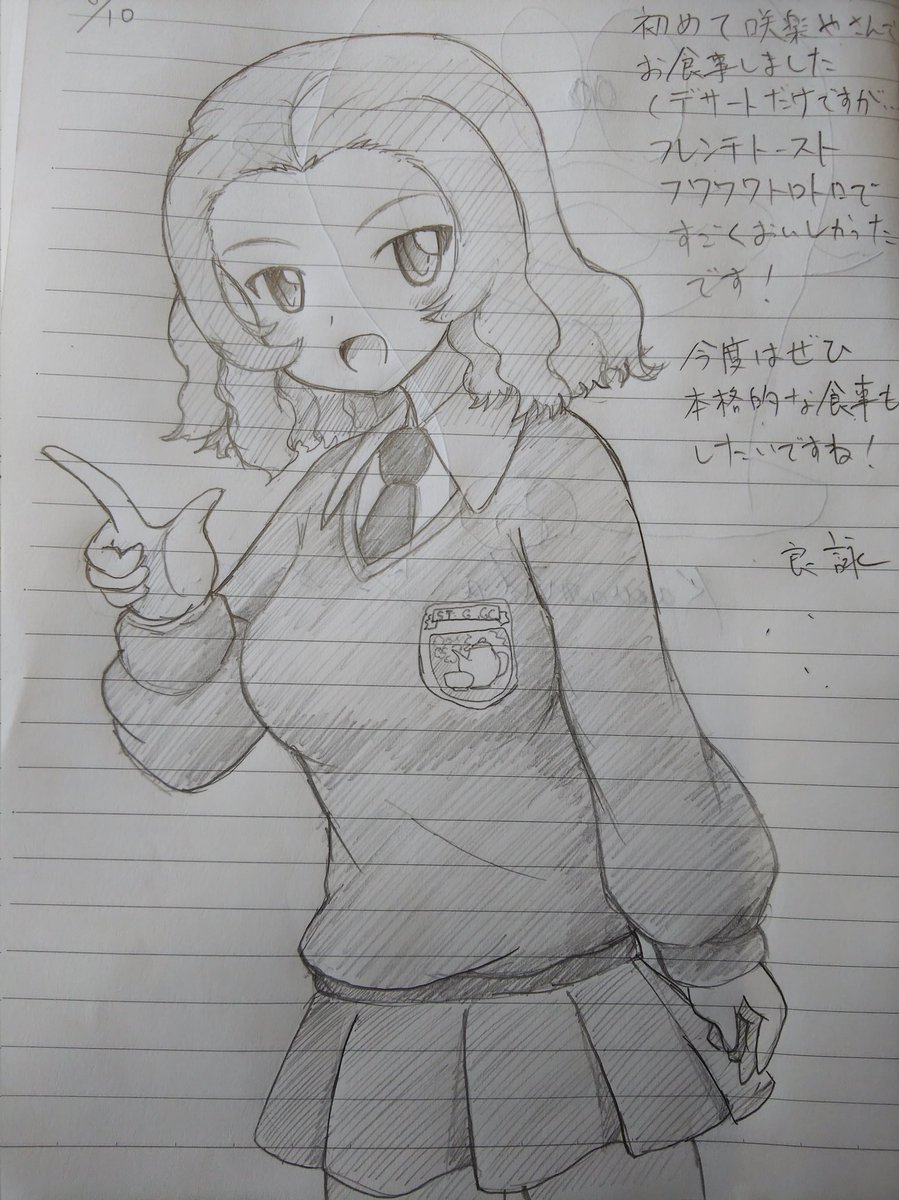 /10
初めて咲楽やさんで
お食事しました
(デザートだけですが…
フレンチトースト
フワフワトロトロで
すごくおいしかった
です!
今度はぜひ
本格的な食事も
したいですね!
良詠
ST. G. GC